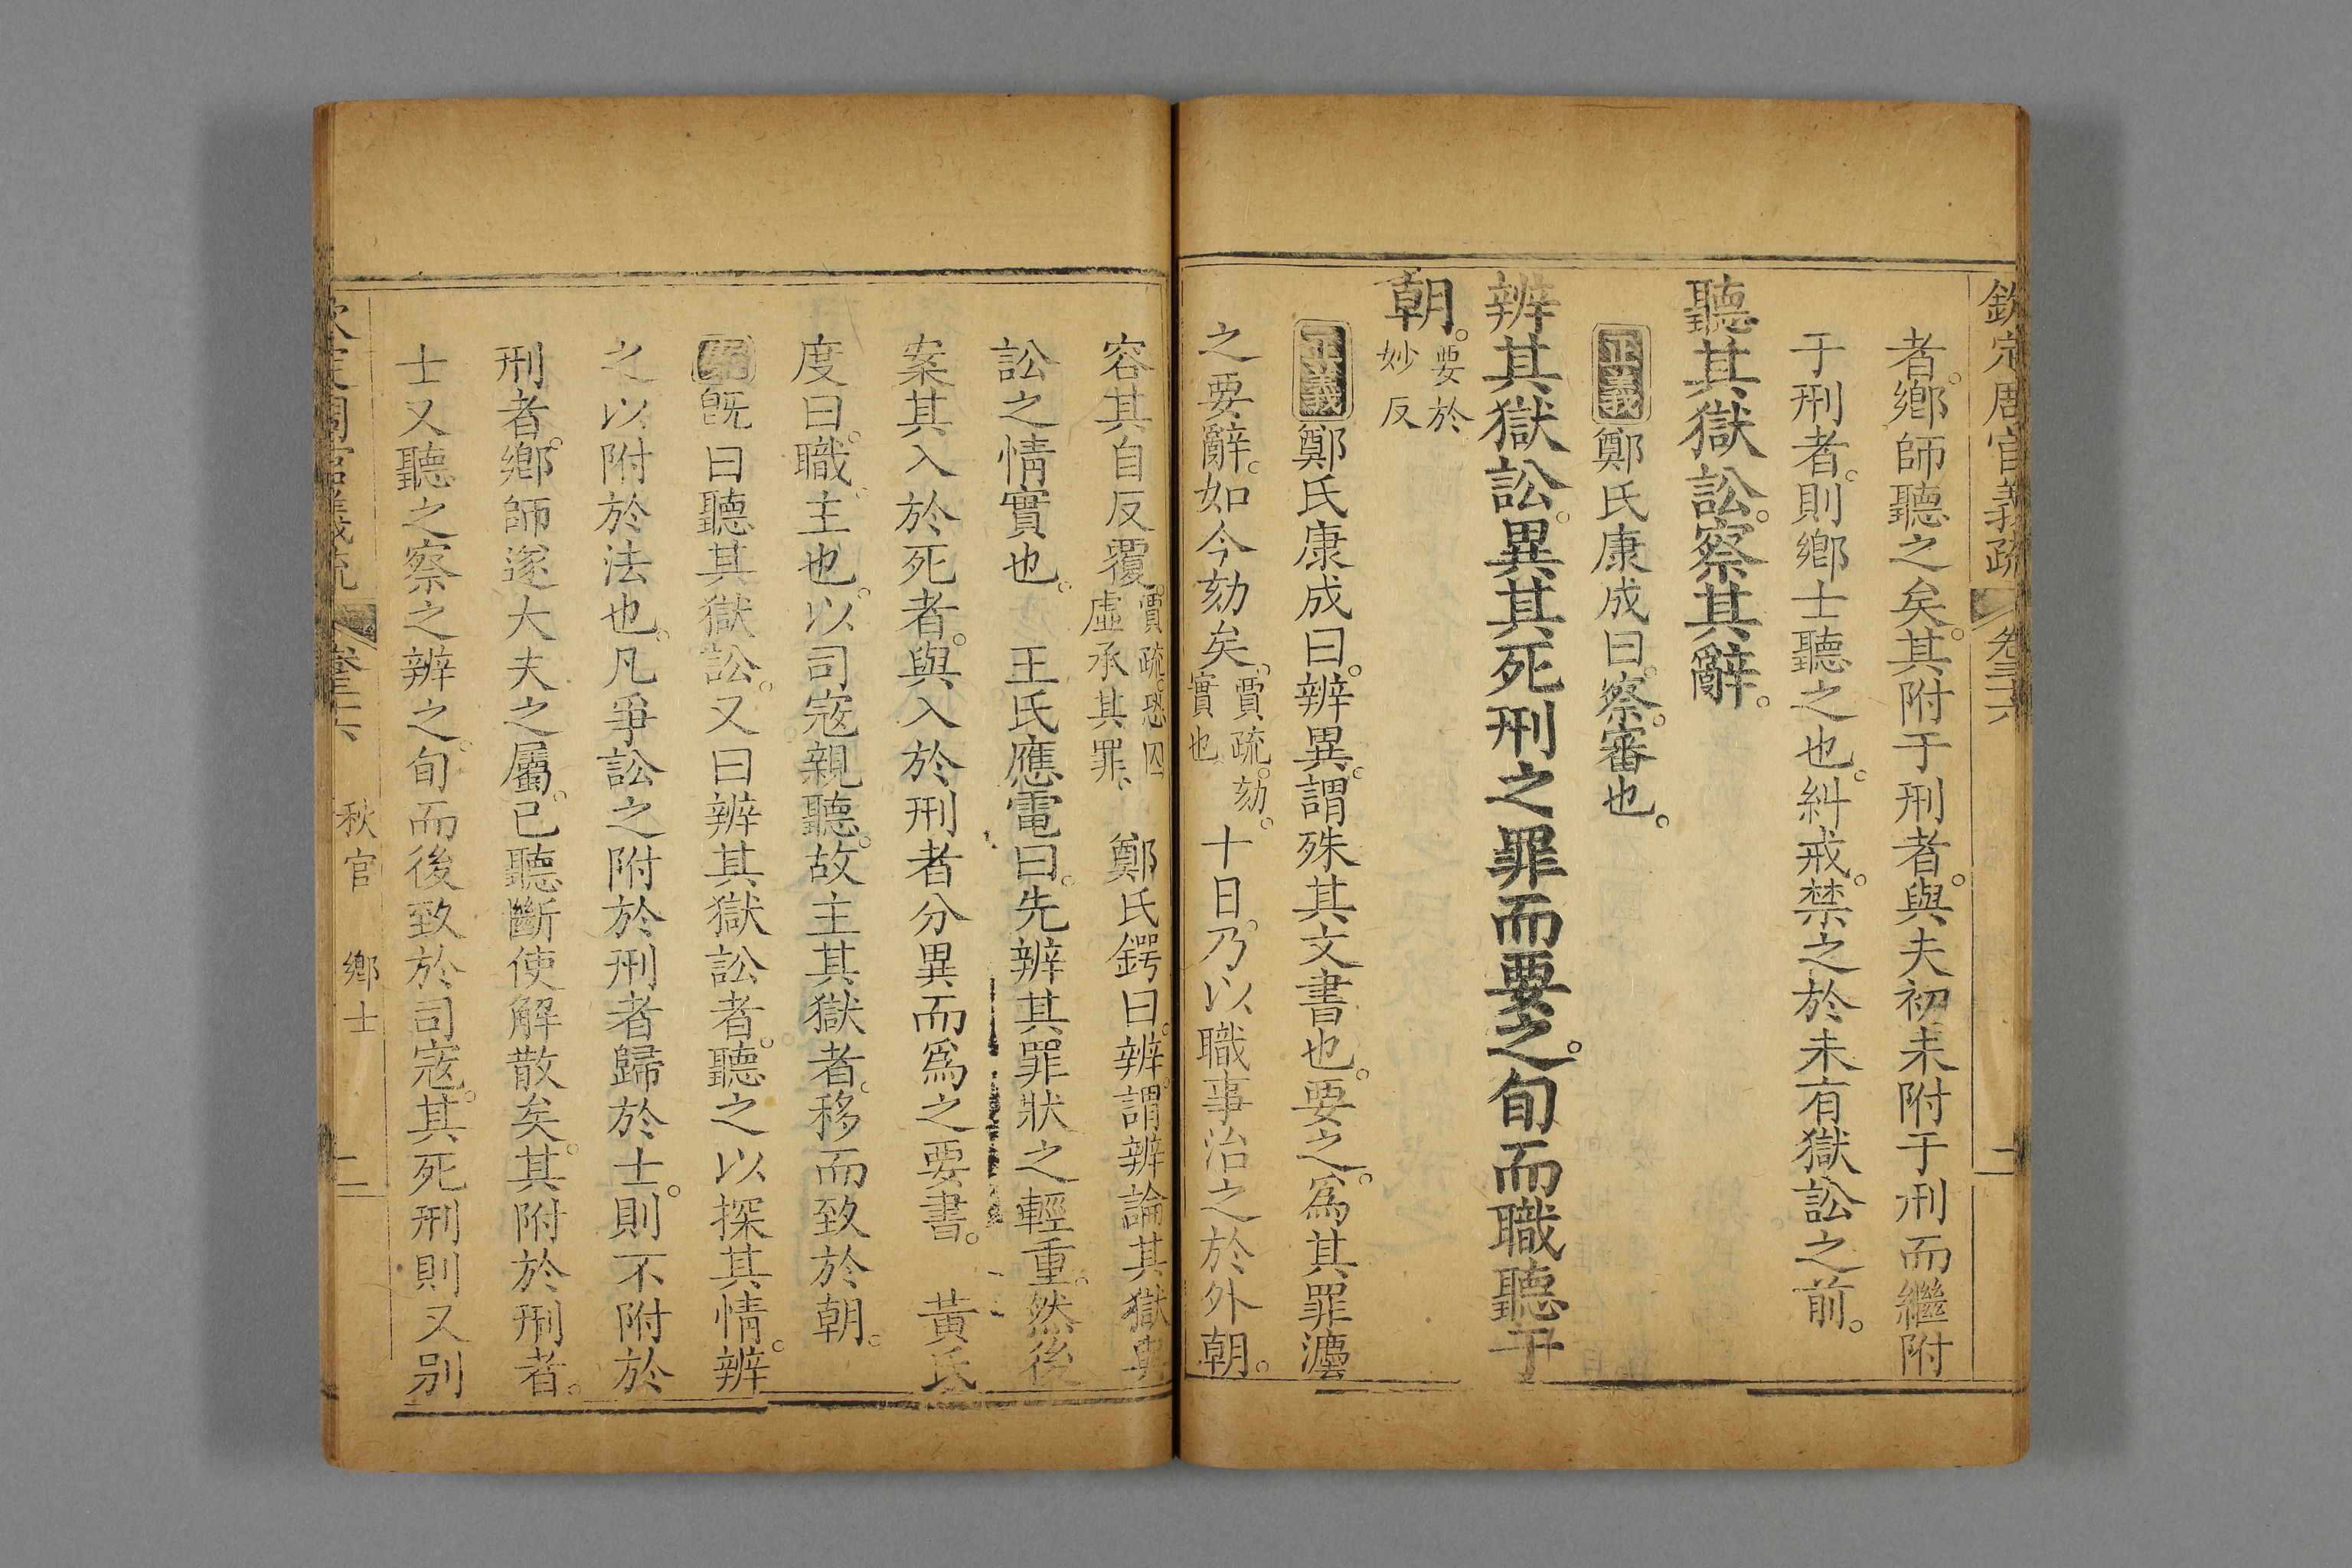 欽定周官義疏 卷三十六 二
者。鄉師聽之矣。其附于刑者。與夫初未附于刑而繼附
于刑者。則鄉士聽之也。糾戒。禁之於未有獄訟之前。
聽其獄訟。察其辭。
正義 鄭氏康成曰。察。審也。
辨其獄訟。異其死刑之罪而要之。旬而職聽于
朝。要於妙反
正義 鄭氏康成曰。辨異。謂殊其文書也。要之。爲其罪灋
之要辭。如今劾矣。賈疏。劾。實也。十日。乃以職事治之於外朝。
容其自反覆。賈疏。恐囚虛承其罪。 鄭氏鍔曰。辨。謂辨論其獄
訟之情實也。 王氏應電曰。先辨其罪狀之輕重。然後
案其入於死者。與入於刑者分異而爲之要書。 黃氏
度曰。職。主也。以司寇親聽。故主其獄者。移而致於朝。
旣曰聽其獄訟。又曰辨其獄訟者。聽之以探其情。辨
之以附於法也。凡爭訟之附於刑者歸於士。則不附於
刑者。鄉師遂大夫之屬。已聽斷使解散矣。其附於刑者。
士又聽之察之辨之。旬而後致於司寇。其死刑則又別
欽定周官義疏 卷三十六 秋官 鄉士 二